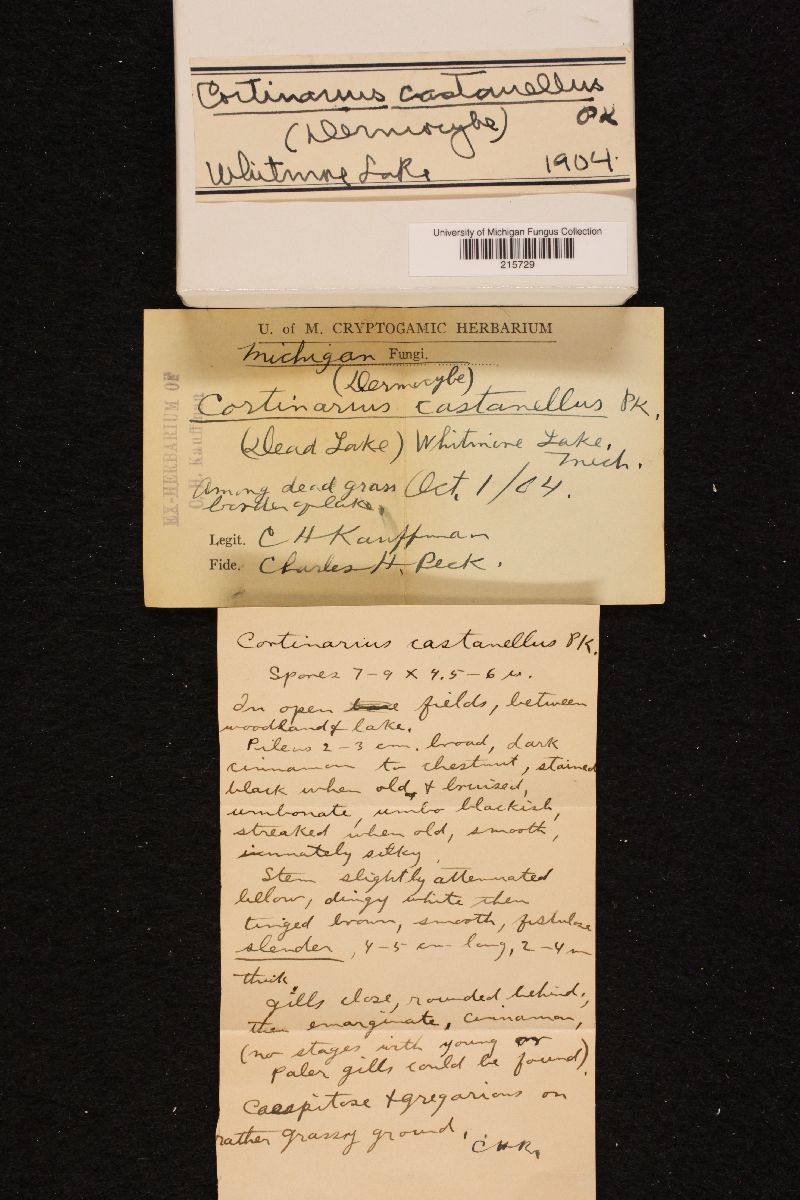 Cortinarius castanellus
(Dermocybe) PK
Whitmore Lake 1904.
University of Michigan Fungus Collection
215729
U. of M. CRYPTOGAMIC HERBARIUM
Michigan Fungi.
(Dermocybe)
Cortinarius castanellus PK.
(Dead Lake) Whitmore Lake,
Mich.
Among dead grass Oct. 1/04.
border of lake.
Legit. C H Kauffman
Fide. Charles H. Peck.
EX-HERBARIUM OF
C. H. Kauffman
Cortinarius castanellus PK.
Spores 7-9 x 4.5-6 u.
In open fields, between
woodland & lake.
Pileus 2-3 cm. broad, dark
cinnamon to chestnut, stained
black when old, & bruised,
umbonate, umbo blackish,
streaked when old, smooth,
innately silky.
Stem slightly attenuated
below, dingy white then
tinged brown, smooth, fistulose
slender, 4-5 cm long, 2-4 m
thick.
gills close, rounded behind,
then emarginate, cinnamon,
(no stages with young or
paler gills could be found).
Caespitose & gregarious on
rather grassy ground.
CHK.